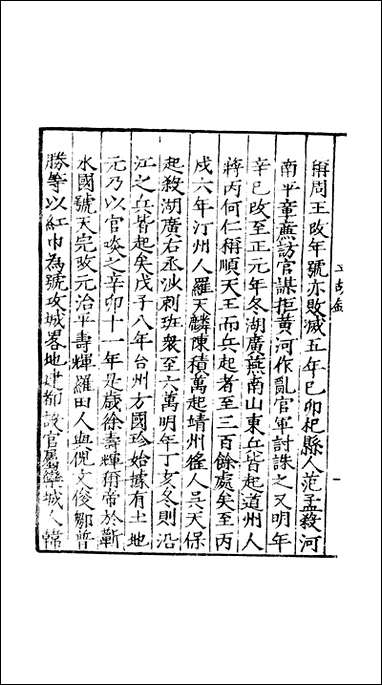 稱周王改年號亦敗滅五年己卯杞縣人范孟殺河
南平章廉訪官謀拒黃河作亂官軍討誅之又明年
辛巳改至正元年冬湖廣燕南山東兵皆起道州人
蔣丙何仁稱順天王而兵起者至二百餘處矣至丙
戌六年汀州人羅天麟陳積萬起靖州猺人吳天保
起殺湖廣右丞沙剌班衆至六萬明年丁亥冬則沿
江之兵皆起矣戊子八年台州方國珍始據有土地
元乃以官啖之辛卯十一年是歲徐壽輝稱帝於蘄
水國號天完改元治平壽輝羅田人與倪文俊鄒普
勝等以紅巾為號攻城畧地建都設官屬欒城人韓